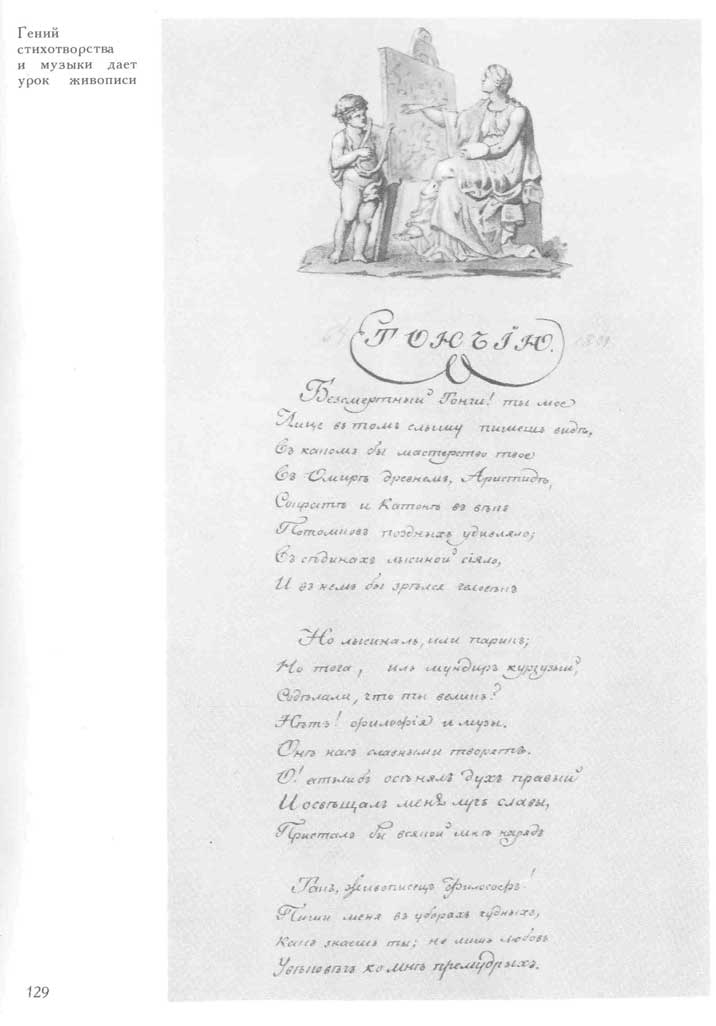 Гений
стихотворства
и музыки дает
урок живописи
ТОНЧІЮ.
Безсмертный Тончи! ты мое
Лице въ томъ слышу пишешь видѣ,
Въ какомъ бы мастерство твое
Въ Омирѣ древнемъ, Аристидѣ,
Сократѣ и Катонѣ въ вѣкъ
Потомковъ поздныхъ удивляло;
Въ сѣдинахъ лысиной сіяло,
И въ немъ бы зрѣлся человѣкъ
Но лысина ль, или парикъ;
Но тога, иль мундиръ кургузый,
Содѣлали, что ты великъ?
Нѣтъ! философія и музы.
Онѣ насъ славными творятъ.
О! атьлибъ осѣнялъ духъ правый
И освѣщалъ меня лучь славы,
Присталъ бы всякой мнѣ нарядъ
Такъ, живописецъ философъ!
Пиши меня въ уборахъ чудныхъ,
Какъ знаешь ты; но лишь любовь
Увѣковѣчь ко мнѣ премудрыхъ.
129